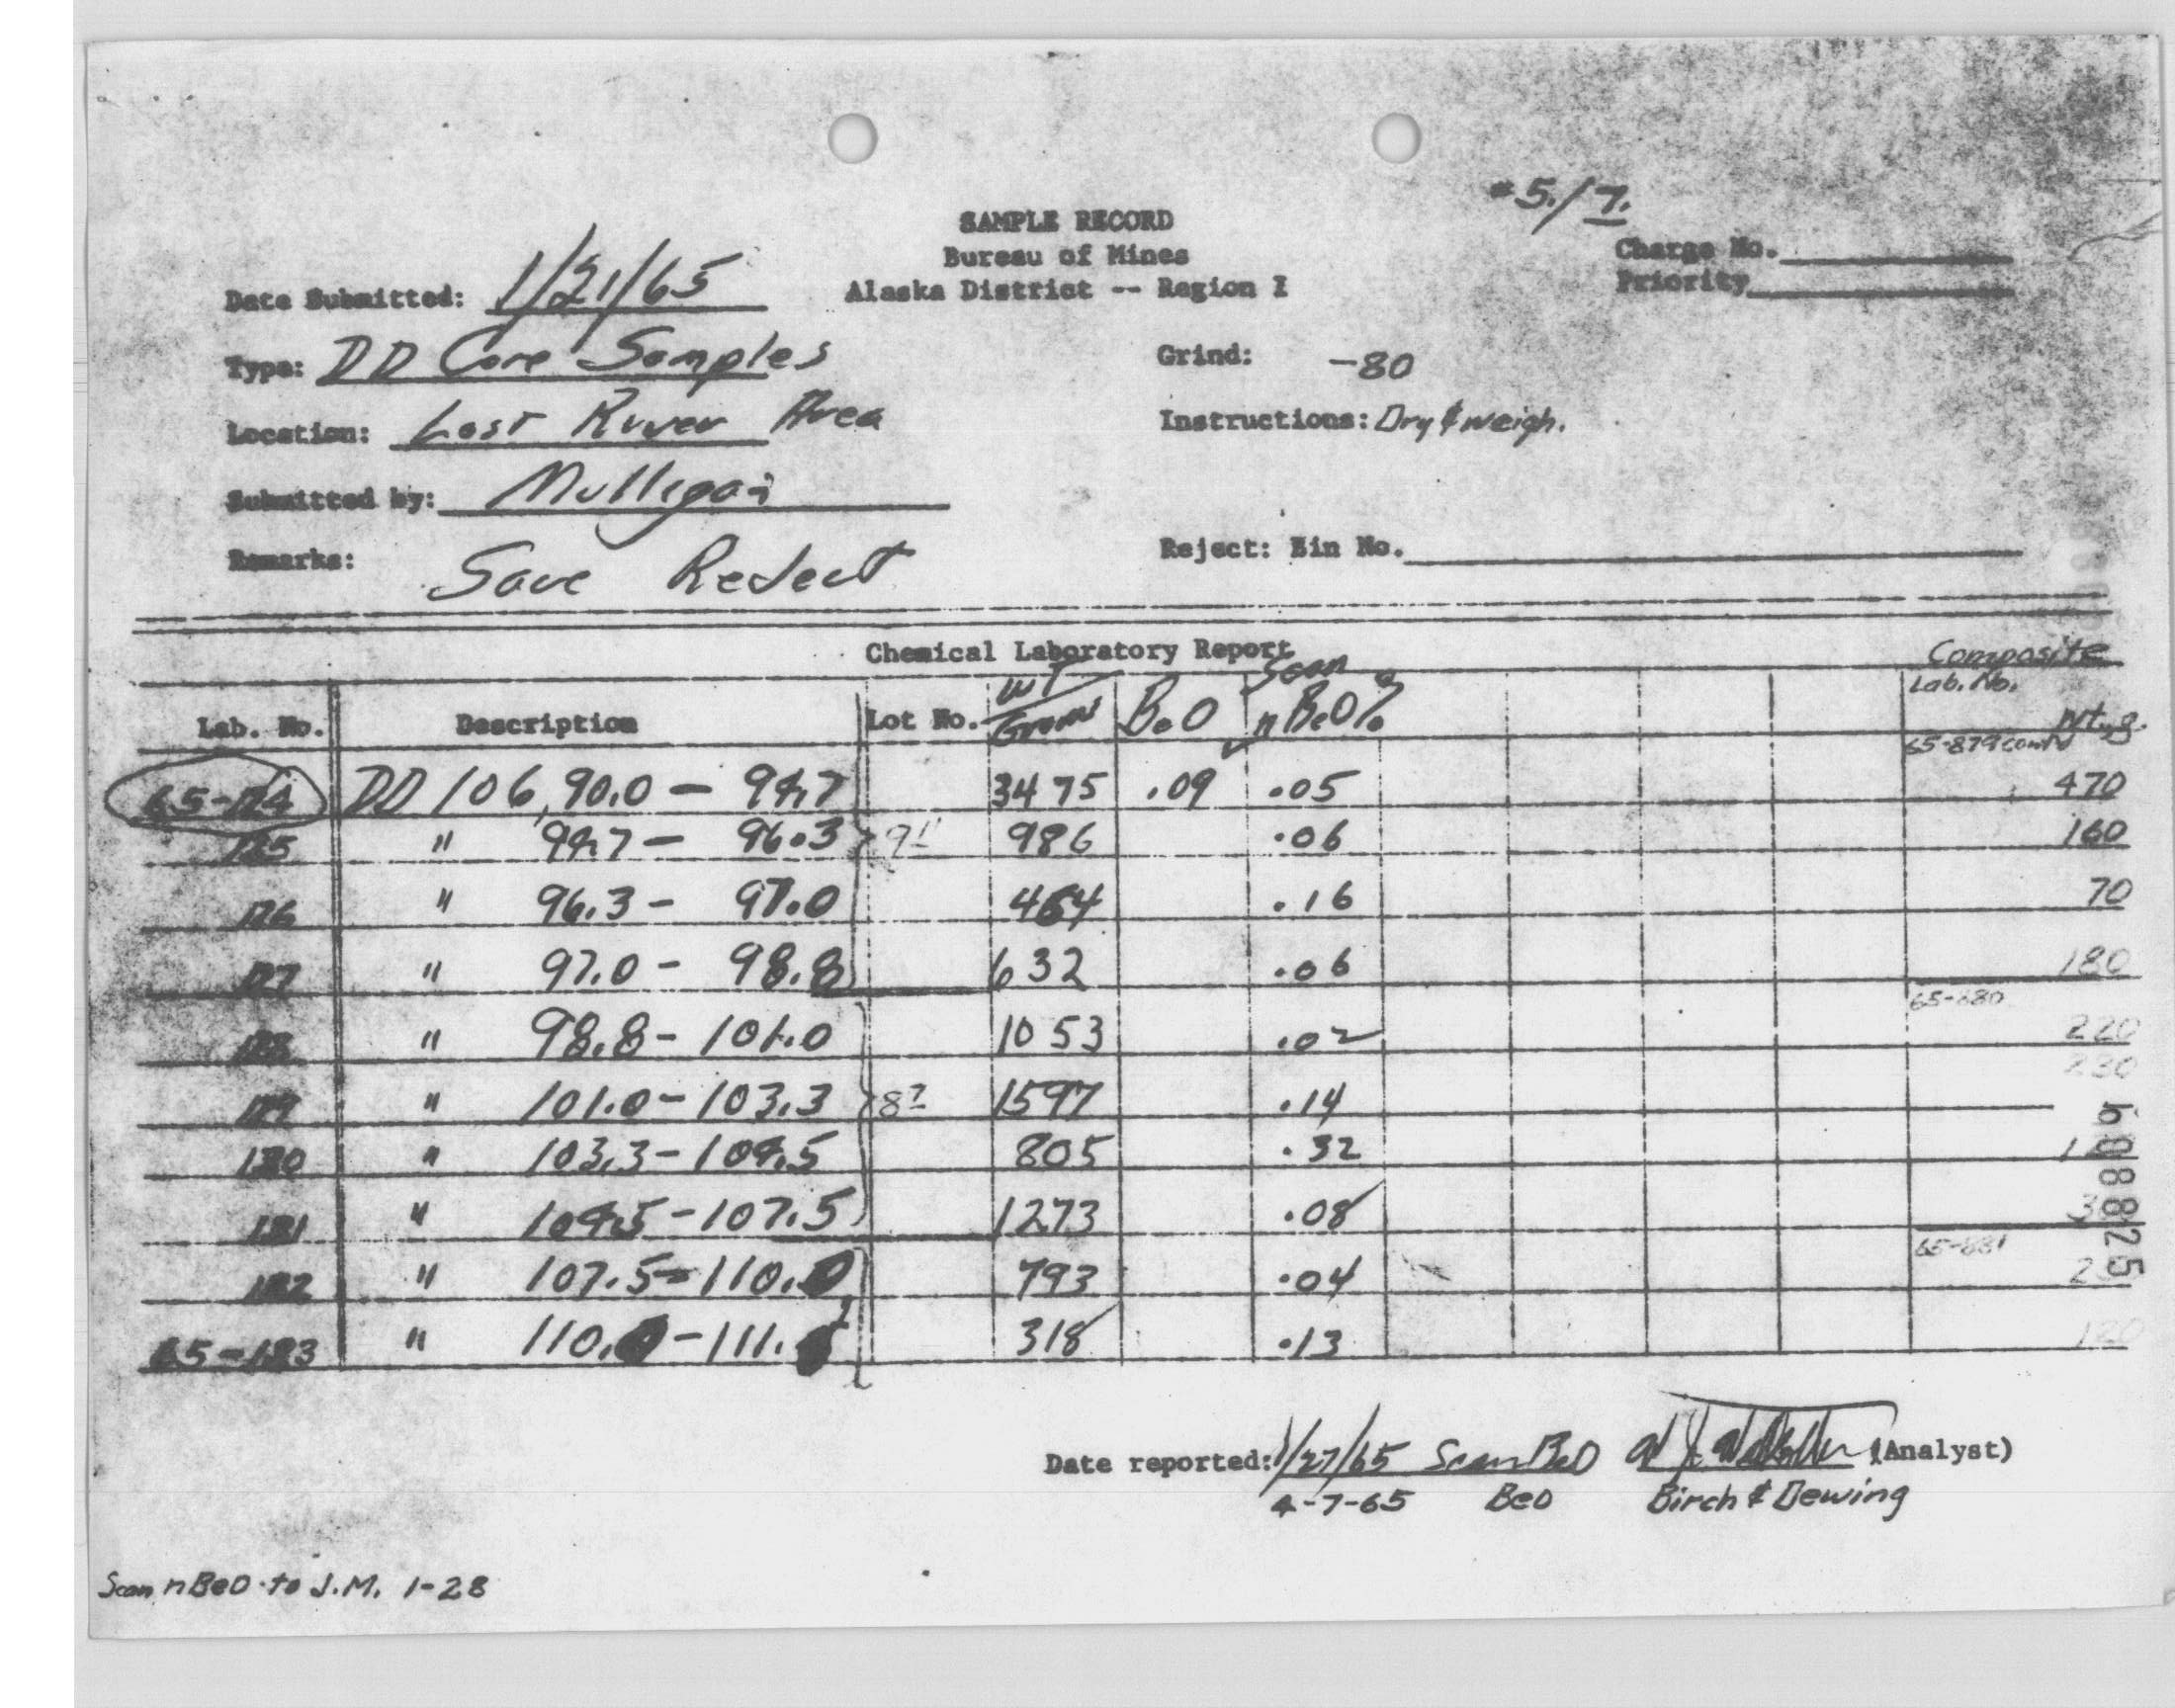 #5./7.
SAMPLE RECORD
Bureau of Mines
Alaska District -- Region I
Charge No.
Priority
Date Submitted: 1/21/65
Type: DD Core Samples
Grind: -80
Location: Lost River Area
Instructions: Dry & weigh.
Submitted by: Mulligan
Remarks: Save Reject
Reject: Bin No.
Chemical Laboratory Report
Composite
Lab. No. Description Lot No. WT Grams BeO Scan n BeO% Lab. No. Wt., g.
65-879 cont'd
65-124 DD 106, 90.0 - 94.7 3475 .09 .05 470
125 " 94.7 - 96.3 986 .06 160
126 " 96.3 - 97.0 464 .16 70
127 " 97.0 - 98.8 632 .06 180
65-880
128 " 98.8 - 101.0 1053 .02 220
129 " 101.0 - 103.3 1597 .14 230
130 " 103.3 - 104.5 805 .32
131 " 104.5 - 107.5 1273 .08
65-881
132 " 107.5 - 110.0 793 .04
65-133 " 110.0 - 111. 318 .13 120
Date reported: 1/27/65 Scan BeO (Analyst)
4-7-65 BeO Birch & Dewing
Scan n BeO to J.M. 1-28